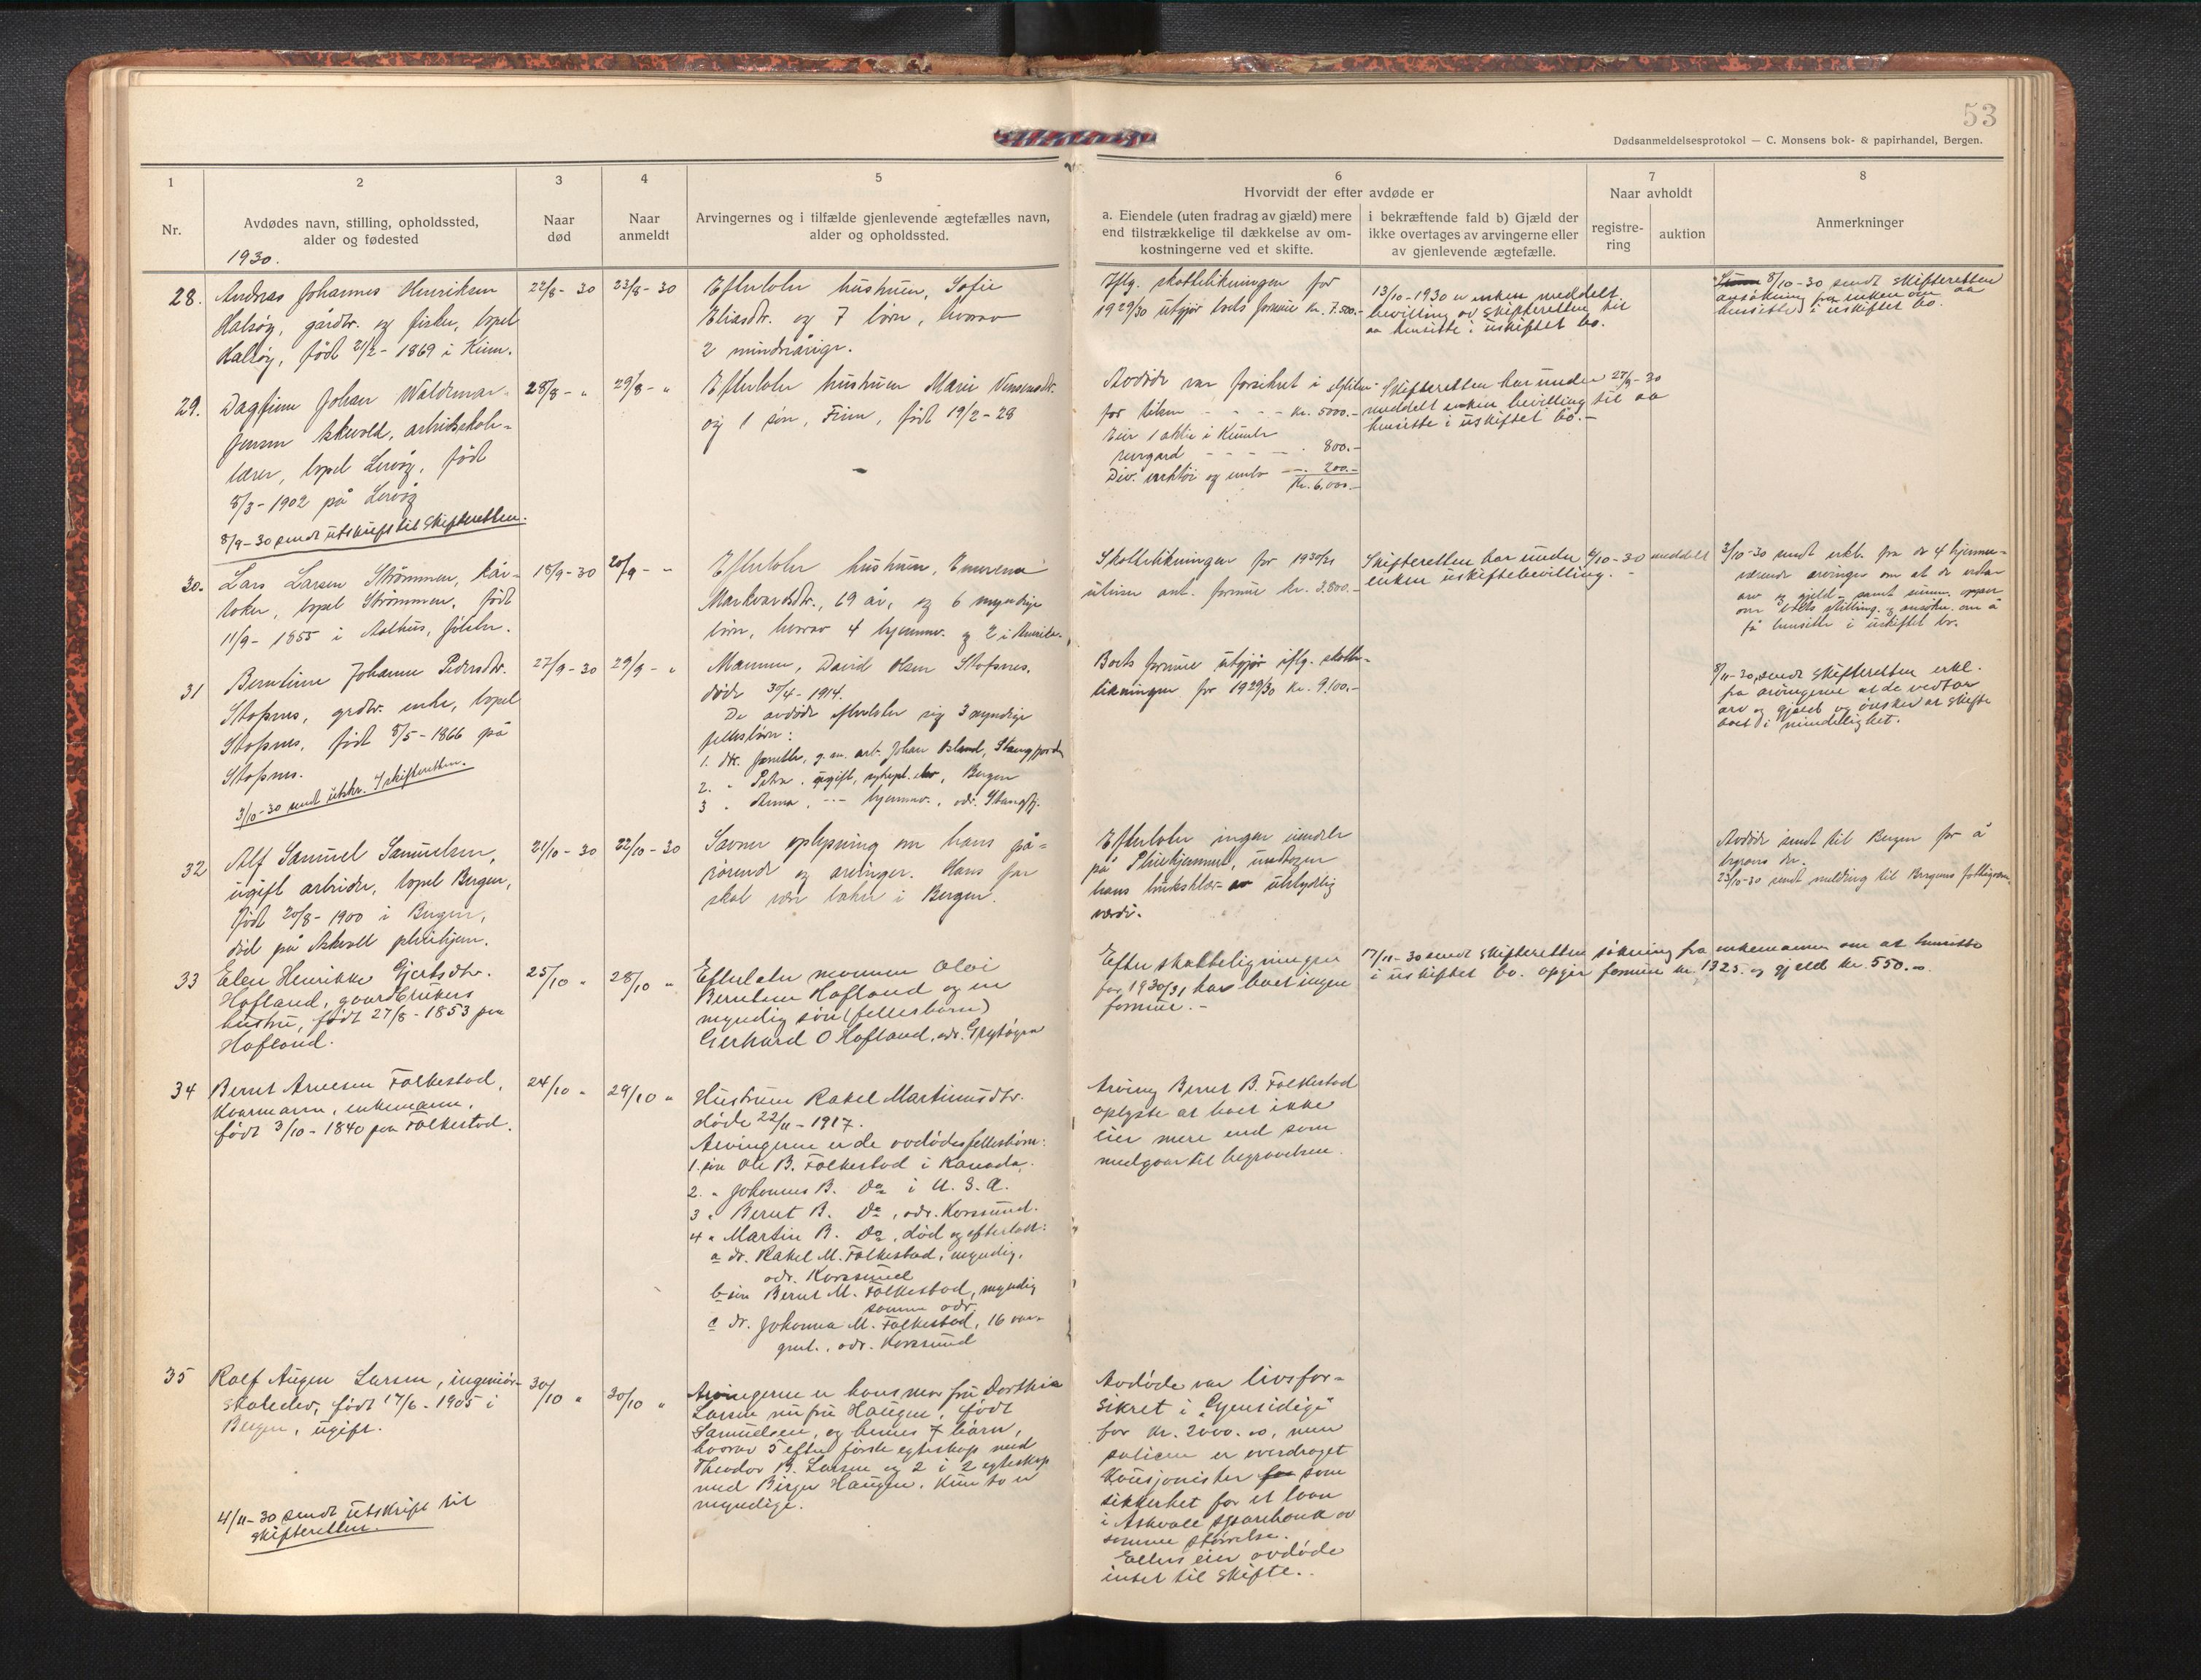 53
Dødsanmeldelsesprotokol — C. Monsens bok- & papirhandel, Bergen.
1
Nr.
2
Avdødes navn, stilling, opholdssted,
alder og fødested
1930.
3
Naar
død
4
Naar
anmeldt
5
Arvingernes og i tilfælde gjenlevende ægtefælles navn,
alder og opholdssted.
6
Hvorvidt der efter avdøde er
a. Eiendele (uten fradrag av gjæld) mere
end tilstrækkelige til dækkelse av om-
kostningerne ved et skifte.
i bekræftende fald b) Gjæld der
ikke overtages av arvingerne eller
av gjenlevende ægtefælle.
7
Naar avholdt
registre-
ring
auktion
8
Anmerkninger
28.
Andreas Johannes Henriksen
Halsøy, gårdbr. og fisker, bopel
Halsøy, født 21/2 - 1869 i Kinn.
22/8 - 30
23/8 - 30
Efterlater hustruen, Sofie
Eliasdtr. og 7 børn, hvorav
2 mindreårige.
Iflg. skattelikningen for
1929/30 utgjør boets formue kr. 7.500.-
13/10 - 1930 er enken meddelt
bevilling av skifteretten til
aa hensitte i uskiftet bo.
8/10 - 30 sendt skifteretten
ansøkning fra enken om aa
hensitte i uskiftet bo.
29.
Dagfinn Johan Waldemar
Jensen Askvold, arbeidsskole-
lærer, bopel Lervøy, født
8/3 - 1902 på Lervøy
8/9 - 30 sendt utskrift til skifteretten.
28/8 - "
29/8 - "
Efterlater hustruen Marie
og 1 søn, Finn, født 19/2 - 28
Avdøde var forsikret i
for - - - - kr. 5000.-
Eier 1 aktie i
- - - - - 800.-
Div. verktøi og - - 200.-
Kr. 6.000.-
Skifteretten har under 27/9 - 30
meddelt enken bevilling til aa
hensitte i uskiftet bo. -
30.
Lars Larsen Strømmen, kår-
taker, bopel Strømmen, født
11/9 - 1855 i Aalhus, Jølster.
18/9 - 30
20/9 - -
Efterlater hustruen,
Markvardsdtr., 69 år, og 6 myndige
børn, hvorav 4 hjemmev. og 2 i Amerika.
Skattelikningen for 1930/31
utviser ant. formue kr. 3.800.-
Skifteretten har under 6/10 - 30 meddelt
enken uskiftebevilling. -
3/10 - 30 sendt erkl. fra de 4 hjemme-
værende arvinger om at de vedtar
arv og gjeld - samt
om boets stilling og ansøkn. om å
få hensitte i uskiftet bo.
31
Berntine Johanne Pedersdtr.
Stafsnes, grdbr. enke, bopel
Stafsnes, født 8/5 - 1866 på
Stafsnes.
3/10 - 30 sendt utskr. t/skifteretten.
27/9 - 30
29/9 - "
Mannen, David Olsen Stafsnes,
døde 30/4 - 1914.
De avdøde efterlater sig 3 myndige
fellesbørn:
1. dtr. Janette, g.m. arb. Johan Østrand, Stangfjorden
2. " Petra, ugift, Bergen
3 " Anna, --- hjemmev., adr. Stangfj.
Boets formue utgjør iflg. skatte-
likningen for 1929/30 kr. 9.100.-
8/11 - 30, sendt skifteretten erkl.
fra arvingerne at de vedtar
arv og gjæld og ønsker at skifte
boet i mindelighet.
32
Alf Samuel Samuelsen,
ugift arbeider, bopel Bergen,
født 20/8 - 1900 i Bergen,
død på Askvoll pleiehjem.
21/10 - 30
22/10 - 30
Savner oplysning om hans på-
rørende og arvinger. Hans far
skal være baker i Bergen.
Efterlater ingen eiendeler
på Pleiehjemmet, undtagen
hans brukskler av ubetydelig
verdi.
Avdøde sendt til Bergen for å
begraves der.
23/10 - 30 sendt melding til Bergens
33
Elen Henrikke Gjertsdtr.
Hofland, gaardbrukers
hustru, født 27/8 - 1853 paa
Hofland.
25/10 "
28/10 "
Efterlater mannen Olai
Berntsen Hofland og en
myndig søn (fellesbarn)
Gerhard O Hofland, adr. Grytøyra
Efter skatteligningen
for 1930/31 har boet ingen
formue. -
17/11 - 30 sendt skifteretten søkning fra enkemannen om at hensitte
i uskiftet bo. opgir formue kr. 1325. og gjeld kr. 550.-.
34
Bernt Arnesen Folkestad,
kaarmann, enkemann,
født 3/10 - 1840 paa Folkestad.
24/10 "
29/10 "
Hustruen Rakel Martinusdtr.
døde 22/11 - 1917.
Arvingerne er de avdødes fellesbørn:
1. søn Ole B. Folkestad i Kanada.
2. " Johannes B. Do i U.S.A.
3 " Bernt B. Do, adr. Korssund.
4 " Martin B. Do, død og efterlatt:
a dr. Rakel M. Folkestad, myndig,
adr. Korssund
b søn Bernt M. Folkestad, myndig
samme adr.
c dr. Johanna M. Folkestad, 16 aar
gml., adr. Korssund
Arving Bernt B. Folkestad
oplyste at boet ikke
eier mere end som
medgaar til begravelsen.
35
Rolf Augen Larsen, ingeniør-
skoleelev, født 17/6 - 1905 i
Bergen, ugift.
4/11 - 30 sendt utskrift til
skifteretten.
30/10 "
30/10 "
Arvingerne er hans mor fru Dorthia
Larsen nu fru Haugen, født
Samuelsen, og hennes 7 barn,
hvorav 5 efter første egteskap med
Theodor B. Larsen og 2 i 2 egteskap
med Birger Haugen. Kun to er
myndige.
Avdøde var livsfor-
sikret i "Gjensidige"
for kr. 2000.00, men
policen er overdraget
kausjonister for som
sikkerhet for et laan
i Askvoll sparebank av
samme størrelse.
Ellers eier avdøde
intet til skifte.